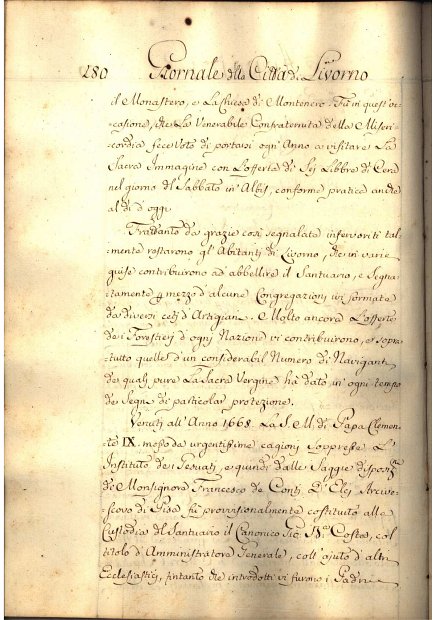 280 Giornale della Città di Livorno
il Monastero, e La Chiesa di Montenero. Fù in quest'oc-
casione, che La Venerabile Confraternita della Miseri-
cordia fece Voto di portarsi ogn'Anno a visitare La
Sacra Immagine con L'offerta di Sej Libbre di Cera
nel giorno del Sabbato in Albis, conforme pratica anche
al dì d'oggi.
Frattanto da grazie così segnalate infervoriti tal-
mente restarono gl'Abitanti di Livorno, che in varie
guise contribuirono ad abbellire il Santuario, e Segna-
tamente per mezzo d'alcune Congregazioni ivi formate
da diversi cetj d'Artigiani. E Molto ancora L'offerte
de i Forestierj d'ogni Nazione vi contribuirono, e sopra-
tutto quelle d'un considerabil Numero di Naviganti
de quali pure La Sacra Vergine ha dato in ogni tempo
de Segni di particolar protezione.
Venuti all'Anno 1668. La S. M. di Papa Clemen-
te IX. mosso da urgentissime cagioni soppresse L'
Instituto de Gesuati, e quindi dalle Saggie disposiz.ni
di Monsignore Francesco de Conti D'Elcj Arcive-
scovo di Pisa fù provisionalmente costituito alla
Custodia del Santuario il Canonico Gio: Costa, col
titolo d'Amministratore Generale, coll'ajuto d'altri
Ecclesiastici, fintanto che introdotti vi furono i Padri